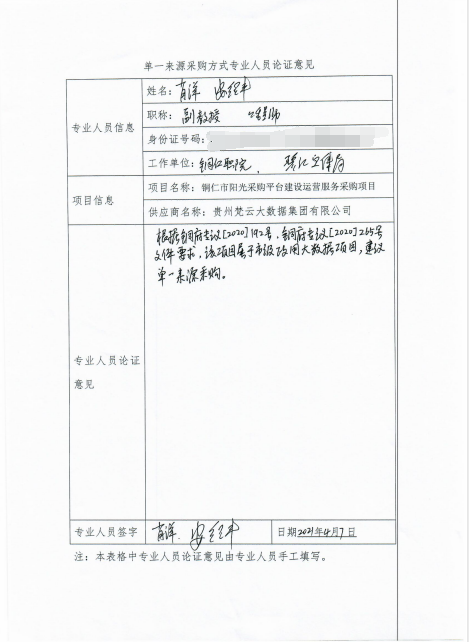 单一来源采购方式专业人员论证意见
专业人员信息
姓名：肖洋
职称：副教授
身份证号码：
工作单位：铜仁职院、
项目信息
项目名称：铜仁市阳光采购平台建设运营服务采购项目
供应商名称：贵州梵云大数据集团有限公司
专业人员论证
意见
根据铜府专议[2020]192号、铜府专议[2020]265号
文件要求，该项目属于市级政用大数据项目，建议
单一来源采购。
专业人员签字
肖洋、
日期2021年4月7日
注：本表格中专业人员论证意见由专业人员手工填写。